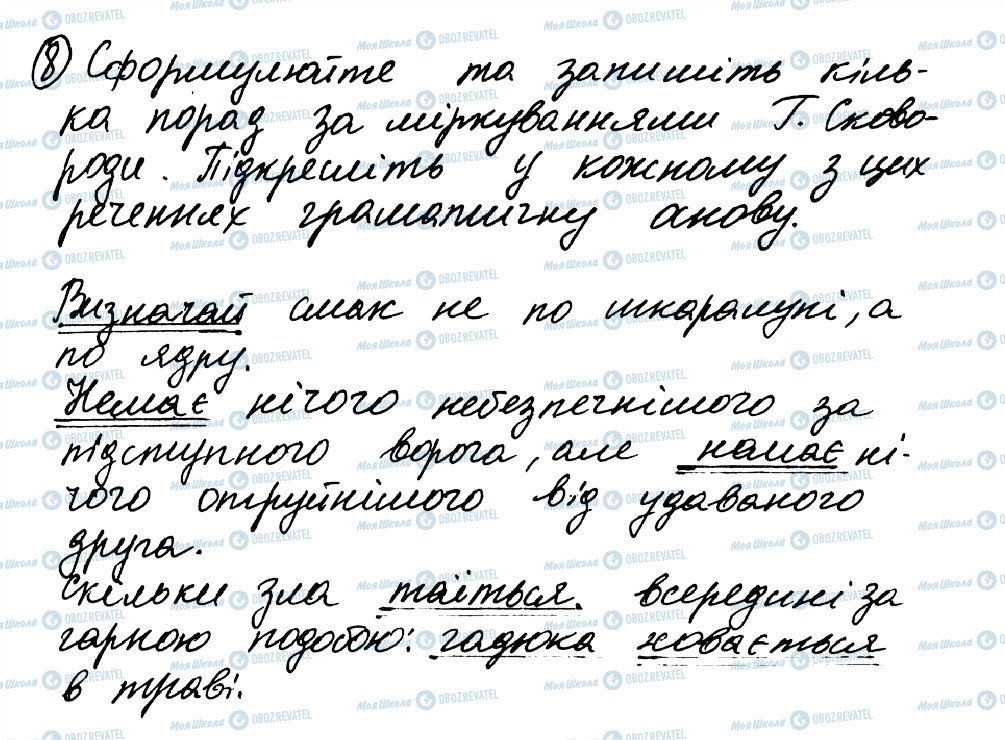 8 Сформулюйте та запишіть кіль-
ка порад за міркуваннями Г. Сково-
роди. Підкресліть у кожному з цих
реченнях граматичну основу.
Визначай смак не по шкаралупі, а
по ядру.
Немає нічого небезпечнішого за
підступного ворога, але намає ні-
чого отруйнішого від удаваного
друга.
Скільки зла таїться всередині за
гарною подобою: гадюка ховається
в траві.